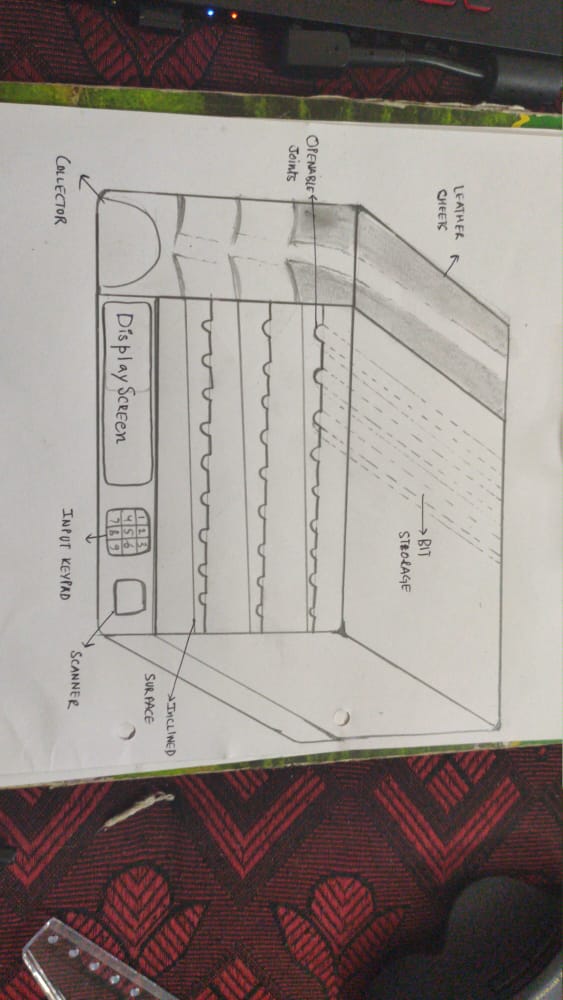 LEATHER
CHEETS
OPENABLE
Joints
BIT
STRORAGE
COLLECTOR
Display SCREEN
1 2 3
4 5 6
7 8 9
INPUT KEYPAD
SCANNER
INCLINED
SURPACE